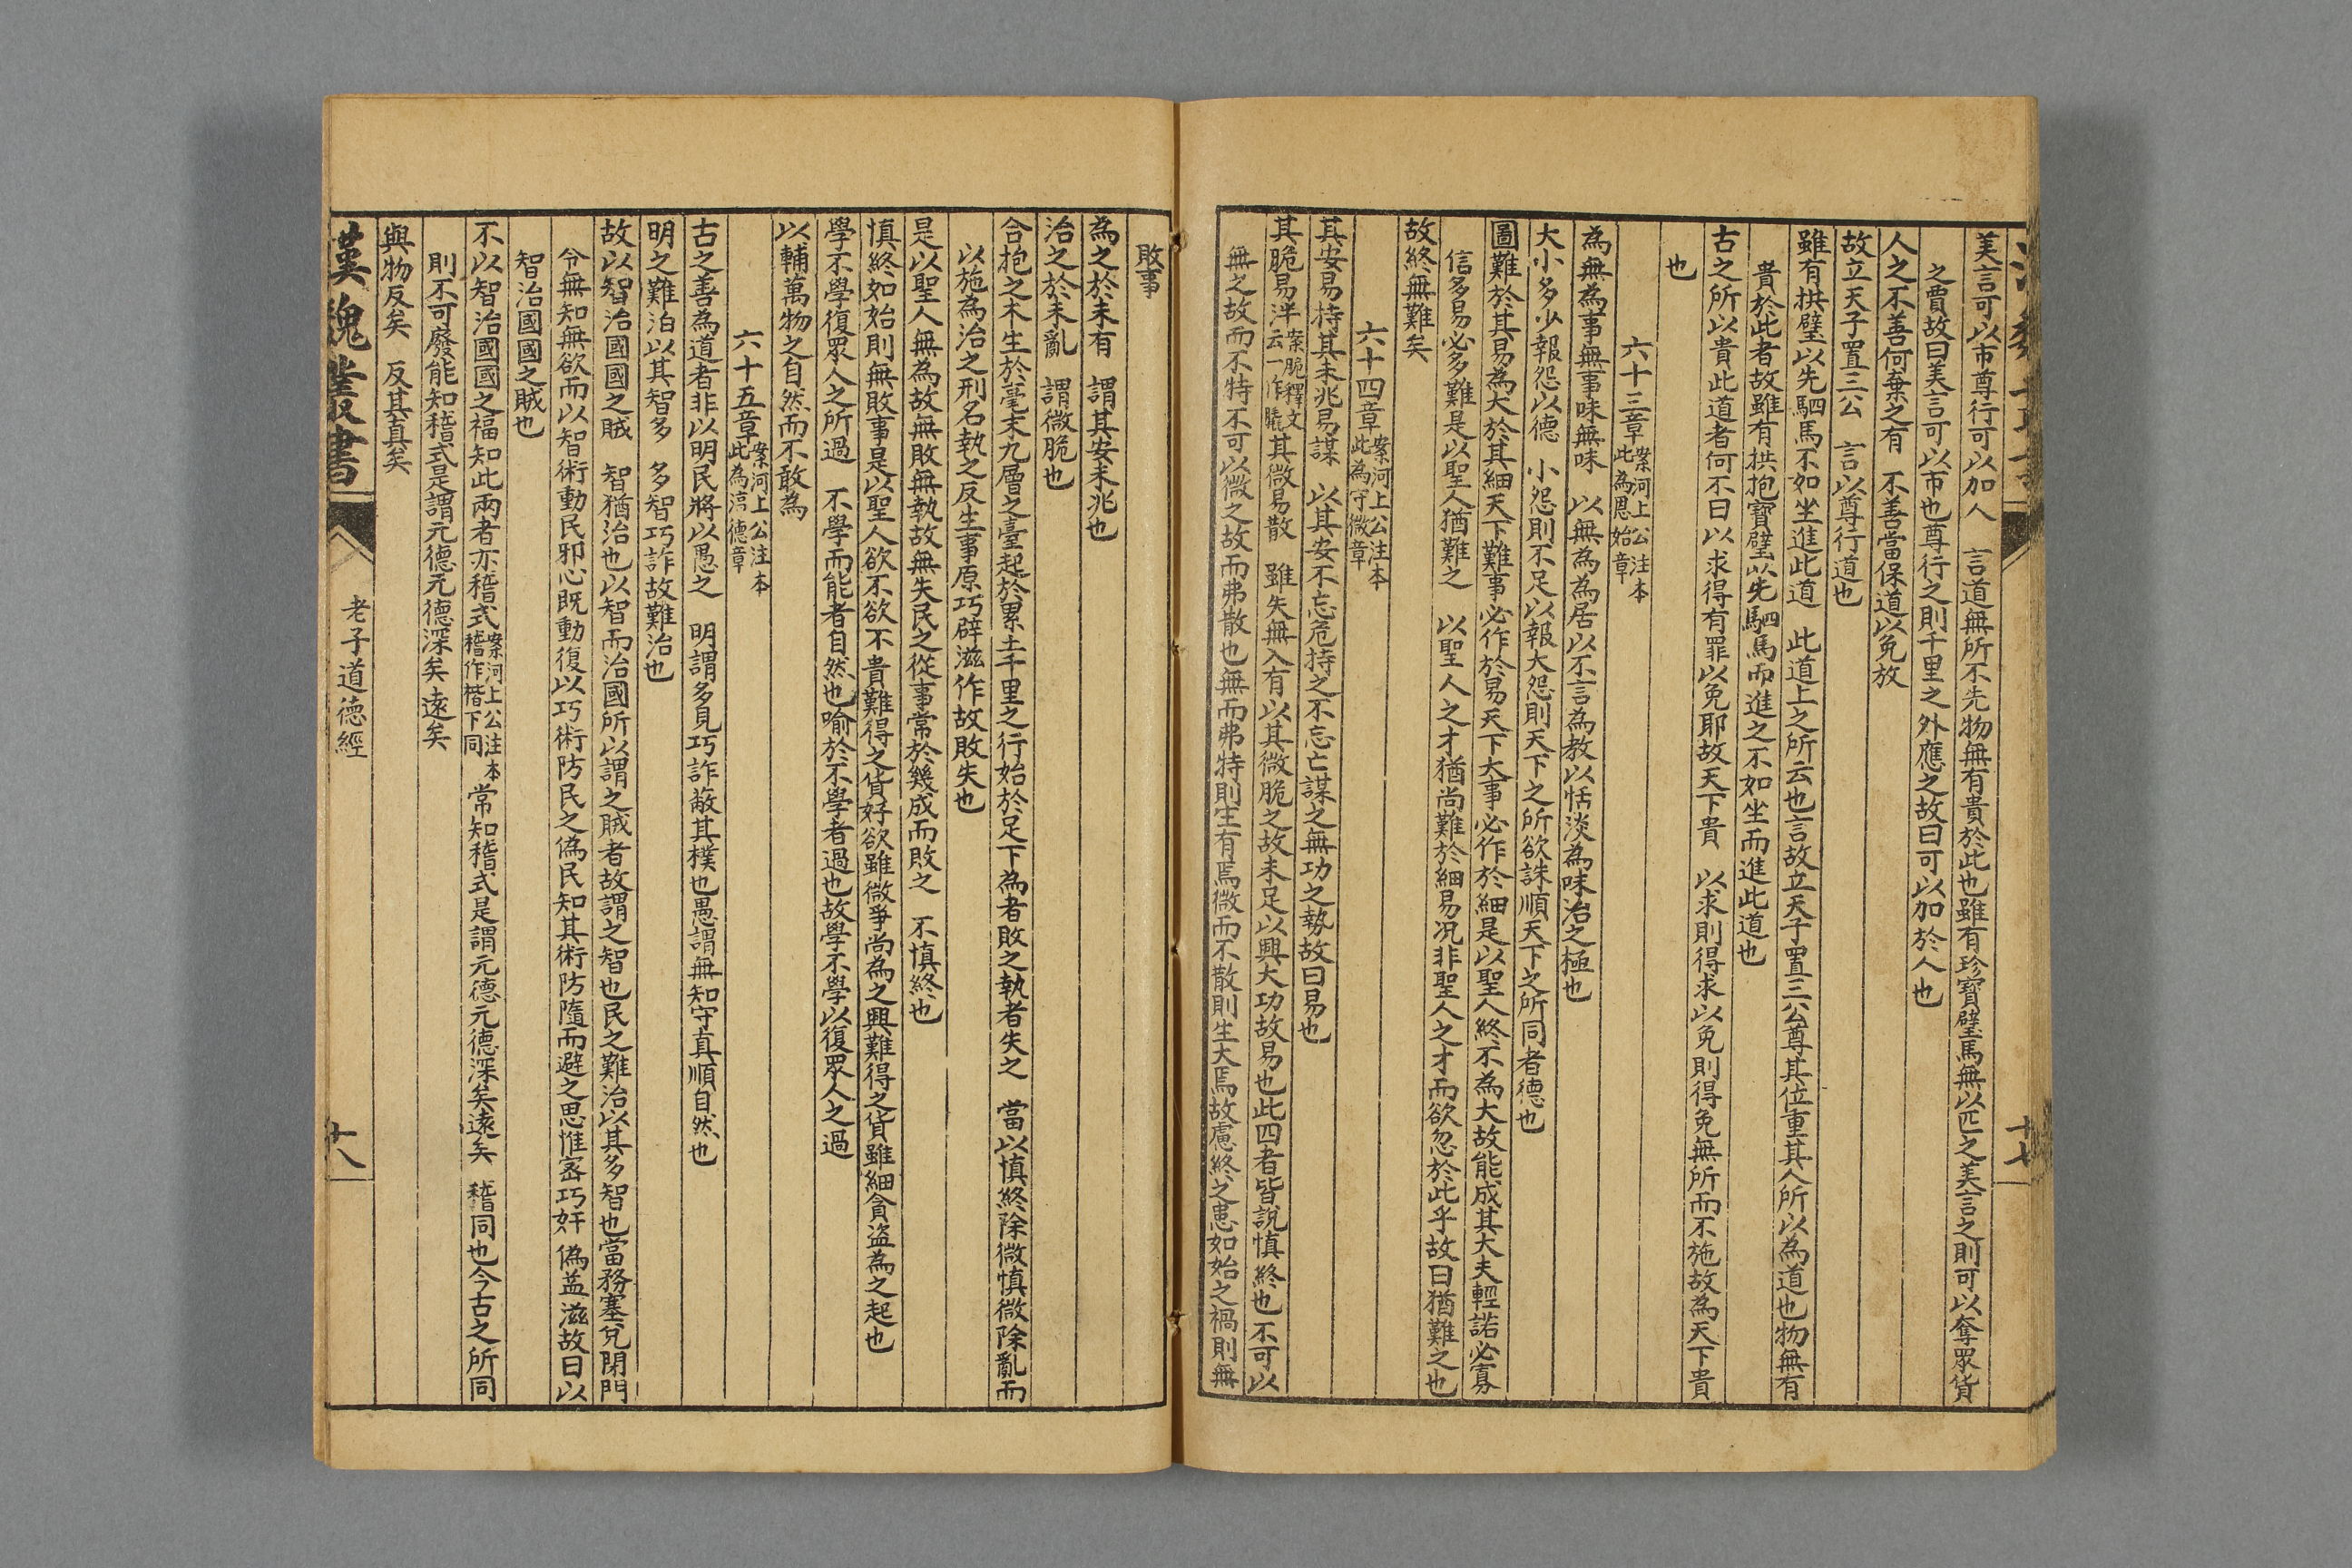 十七
美言可以市尊行可以加人　言道無所不先物無有貴於此也雖有珍寶璧馬無以匹之美言之則可以奪眾貨
之賈故曰美言可以市也尊行之則千里之外應之故曰可以加於人也
人之不善何棄之有　不善當保道以免放
故立天子置三公　言以尊行道也
雖有拱璧以先駟馬不如坐進此道　此道上之所云也言故立天子置三公尊其位重其人所以為道也物無有
貴於此者故雖有拱抱寶璧以先駟馬而進之不如坐而進此道也
古之所以貴此道者何不日以求得有罪以免耶故天下貴　以求則得求以免則得免無所而不施故為天下貴
也
六十三章案河上公注本此為恩始章
為無為事無事味無味　以無為為居以不言為教以恬淡為味治之極也
大小多少報怨以德　小怨則不足以報大怨則天下之所欲誅順天下之所同者德也
圖難於其易為大於其細天下難事必作於易天下大事必作於細是以聖人終不為大故能成其大夫輕諾必寡
信多易必多難是以聖人猶難之　以聖人之才猶尚難於細易況非聖人之才而欲忽於此乎故曰猶難之也
故終無難矣
六十四章案河上公注本此為守微章
其安易持其未兆易謀　以其安不忘危持之不忘亡謀之無功之勢故曰易也
其脆易泮案脆釋文云一作膬其微易散　雖失無入有以其微脆之故未足以興大功故易也此四者皆說慎終也不可以
無之故而不持不可以微之故而弗散也無而弗持則生有焉微而不散則生大焉故慮終之患如始之禍則無
敗事
為之於未有　謂其安未兆也
治之於未亂　謂微脆也
合抱之木生於毫末九層之臺起於累土千里之行始於足下為者敗之執者失之　當以慎終除微慎微除亂而
以施為治之刑名執之反生事原巧辟滋作故敗失也
是以聖人無為故無敗無執故無失民之從事常於幾成而敗之　不慎終也
慎終如始則無敗事是以聖人欲不欲不貴難得之貨好欲雖微爭尚為之興難得之貨雖細貪盜為之起也
學不學復眾人之所過　不學而能者自然也喻於不學者過也故學不學以復眾人之過
以輔萬物之自然而不敢為
六十五章案河上公注本此為淳德章
古之善為道者非以明民將以愚之　明謂多見巧詐蔽其樸也愚謂無知守真順自然也
明之難治以其智多　多智巧詐故難治也
故以智治國國之賊　智猶治也以智而治國所以謂之賊者故謂之智也民之難治以其多智也當務塞兌閉門
令無知無欲而以智術動民邪心既動復以巧術防民之偽民知其術防隨而避之思惟密巧奸偽益滋故曰以
智治國國之賊也
不以智治國國之福知此兩者亦稽式案河上公注本稽作楷下同常知稽式是謂元德元德深矣遠矣　稽同也今古之所同
則不可廢能知稽式是謂元德元德深矣遠矣
與物反矣　反其真矣
漢魏叢書　老子道德經　十八